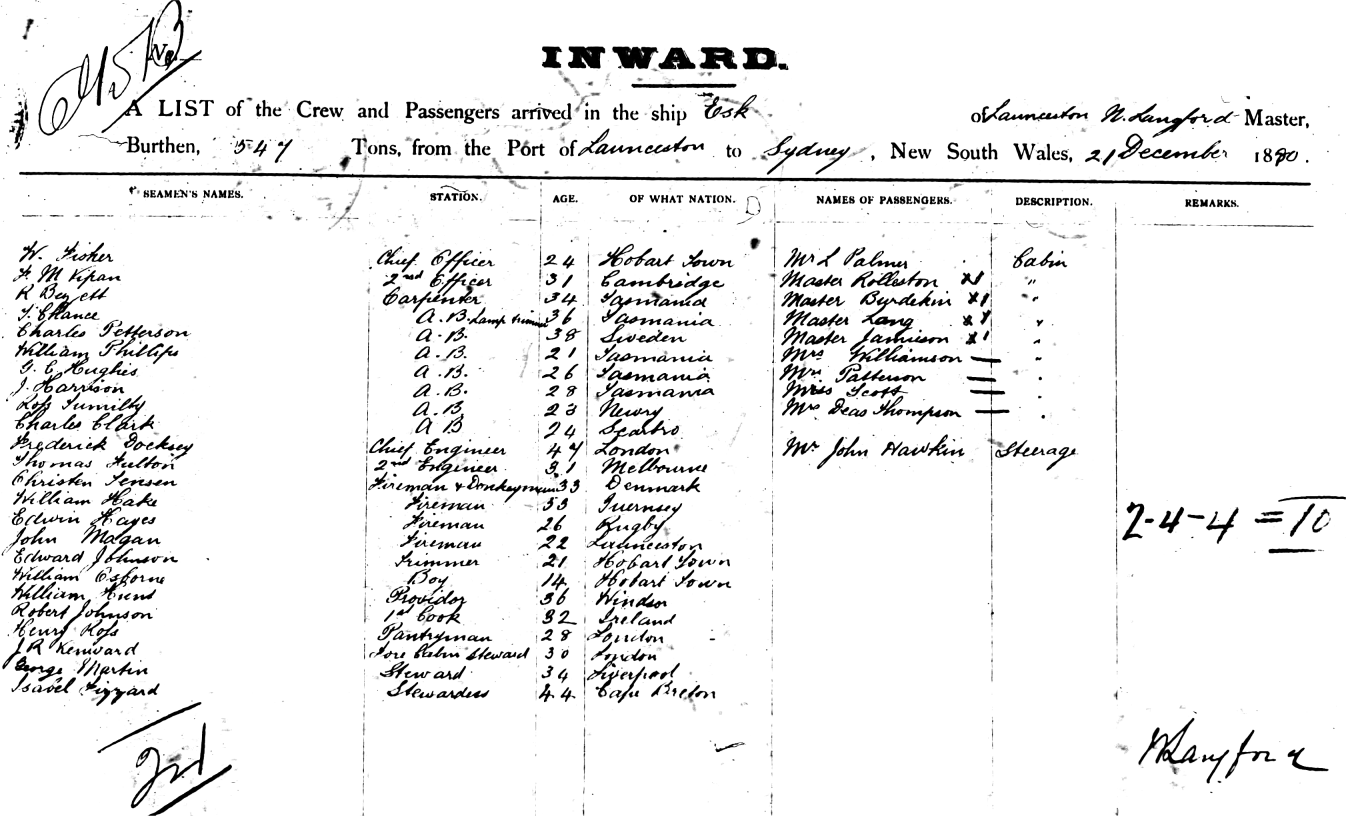 No.
INWARD.
A LIST of the Crew and Passengers arrived in the ship Esk of Launceston N. Langford Master,
Burthen, 547 Tons, from the Port of Launceston to Sydney, New South Wales, 21 December 1880.
SEAMEN'S NAMES. STATION. AGE. OF WHAT NATION. NAMES OF PASSENGERS. DESCRIPTION. REMARKS.
W. Fisher Chief Officer 24 Hobart Town Mr L Palmer Cabin
F. M 2nd Officer 31 Cambridge Master Rolleston x1 "
R Carpenter 34 Tasmania Master Burdekin x1 "
T. Chance A.B. Lamp trimmer 36 Tasmania Master Lang x1 "
Charles Petterson A.B. 38 Sweden Master Jamieson x1 "
William Phillips A.B. 21 Tasmania Mrs Williamson — "
G. E Hughes A.B. 26 Tasmania Patterson — "
J. Harrison A.B. 28 Tasmania Miss Scott — "
Ross A.B 23 Newry Mrs Deas Thompson — "
Charles Clark A B 24 Scarbro
Frederick Docksey Chief Engineer 47 London Mr John Hawkin Steerage
Thomas Fulton 2nd Engineer 31 Melbourne
Christen Jensen Fireman & Donkeyman 33 Denmark
William Hake Fireman 33 Guernsey
Edwin Hayes Fireman 26 Rugby
John Magan Fireman 22 Launceston
2-4-4 = 10
Edward Johnson Trimmer 21 Hobart Town
William Osborne Boy 14 Hobart Town
William Providor 36 Windsor
Robert Johnson 1st Cook 32 Ireland
Henry Ross Pantryman 28 London
J R Kenward Fore Cabin Steward 30 London
George Martin Steward 34 Liverpool
Isabel Fizzard Stewardess 44 Cape Breton
N Langford